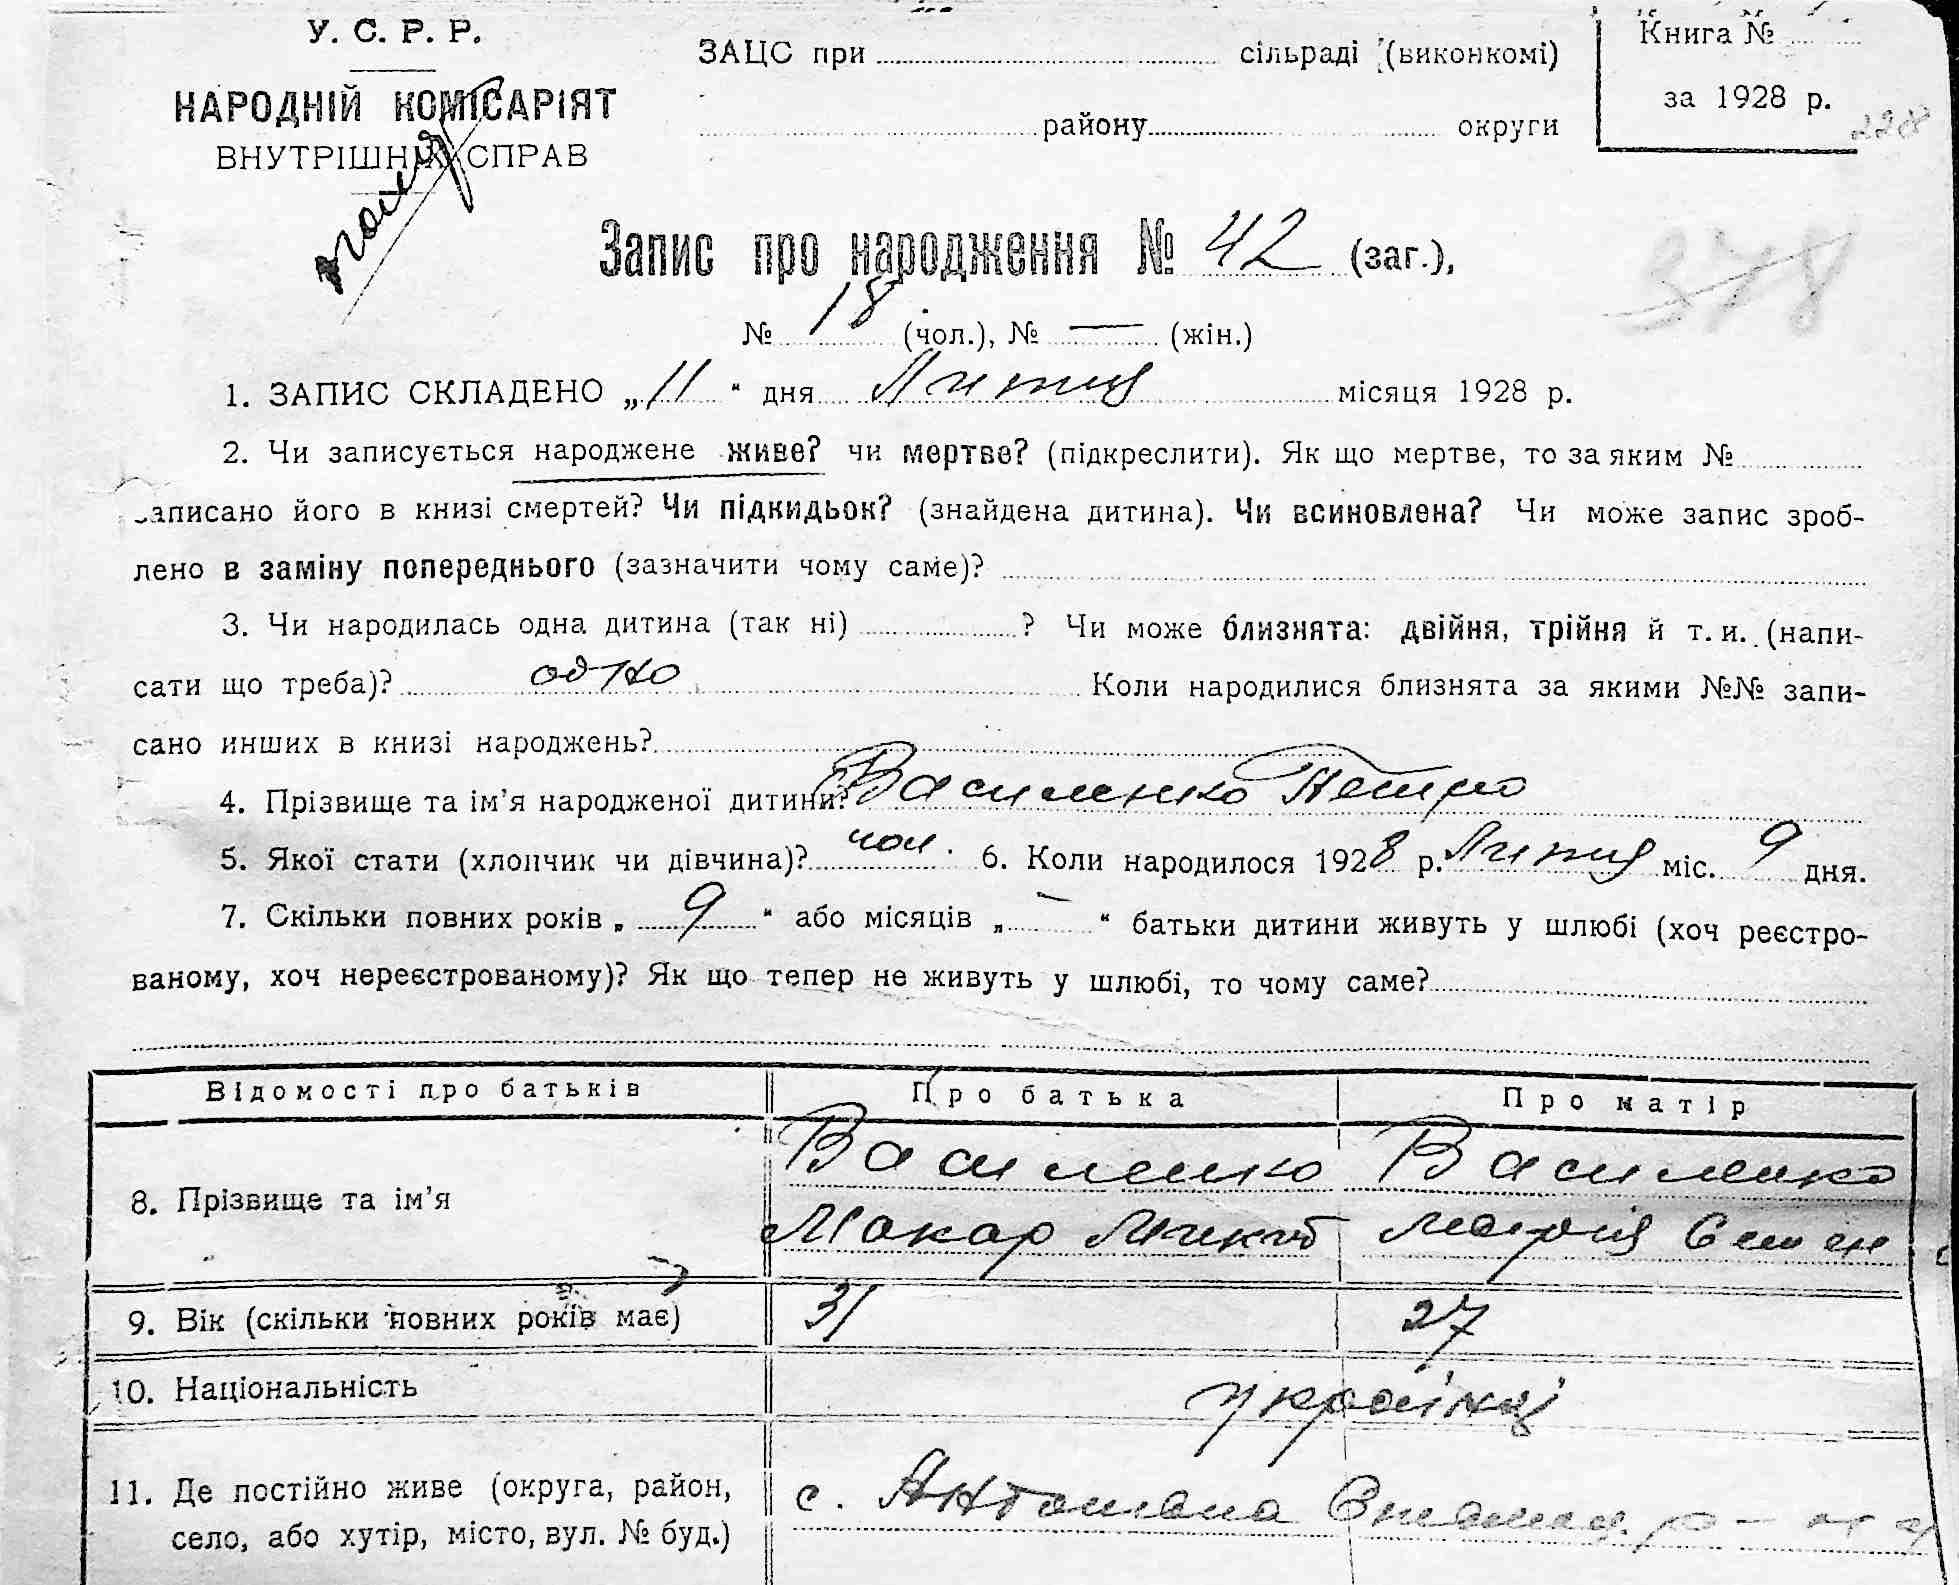 У. С. Р. Р.
НАРОДНІЙ КОМІСАРІЯТ
ВНУТРІШНІХ СПРАВ
ЗАЦС при сільраді (виконкомі)
району округи
Книга №
за 1928 р.
228
Запис про народження № 42 (заг.),
378
№ 18 (чол.), № — (жін.)
1. ЗАПИС СКЛАДЕНО „11“ дня Липня місяця 1928 р.
2. Чи записується народжене живе? чи мертве? (підкреслити). Як що мертве, то за яким №
записано його в книзі смертей? Чи підкидьок? (знайдена дитина). Чи всиновлена? Чи може запис зроб-
лено в заміну попереднього (зазначити чому саме)?
3. Чи народилась одна дитина (так ні) ? Чи може близнята: двійня, трійня й т. и. (напи-
сати що треба)? одно Коли народилися близнята за якими №№ запи-
сано инших в книзі народжень?
4. Прізвище та ім’я народженої дитини? Василенко Петро
5. Якої стати (хлопчик чи дівчина)? чол. 6. Коли народилося 1928 р. Липня міс. 9 дня.
7. Скільки повних років „ 9 “ або місяців „ — “ батьки дитини живуть у шлюбі (хоч реєстро-
ваному, хоч нереєстрованому)? Як що тепер не живуть у шлюбі, то чому саме?
Відомості про батьків Про батька Про матір
8. Прізвище та ім’я Василенко Василенко
Макар Микит Марія Семен
9. Вік (скільки повних років має) 31 27
10. Національність українці
11. Де постійно живе (округа, район,
село, або хутір, місто, вул. № буд.) с.